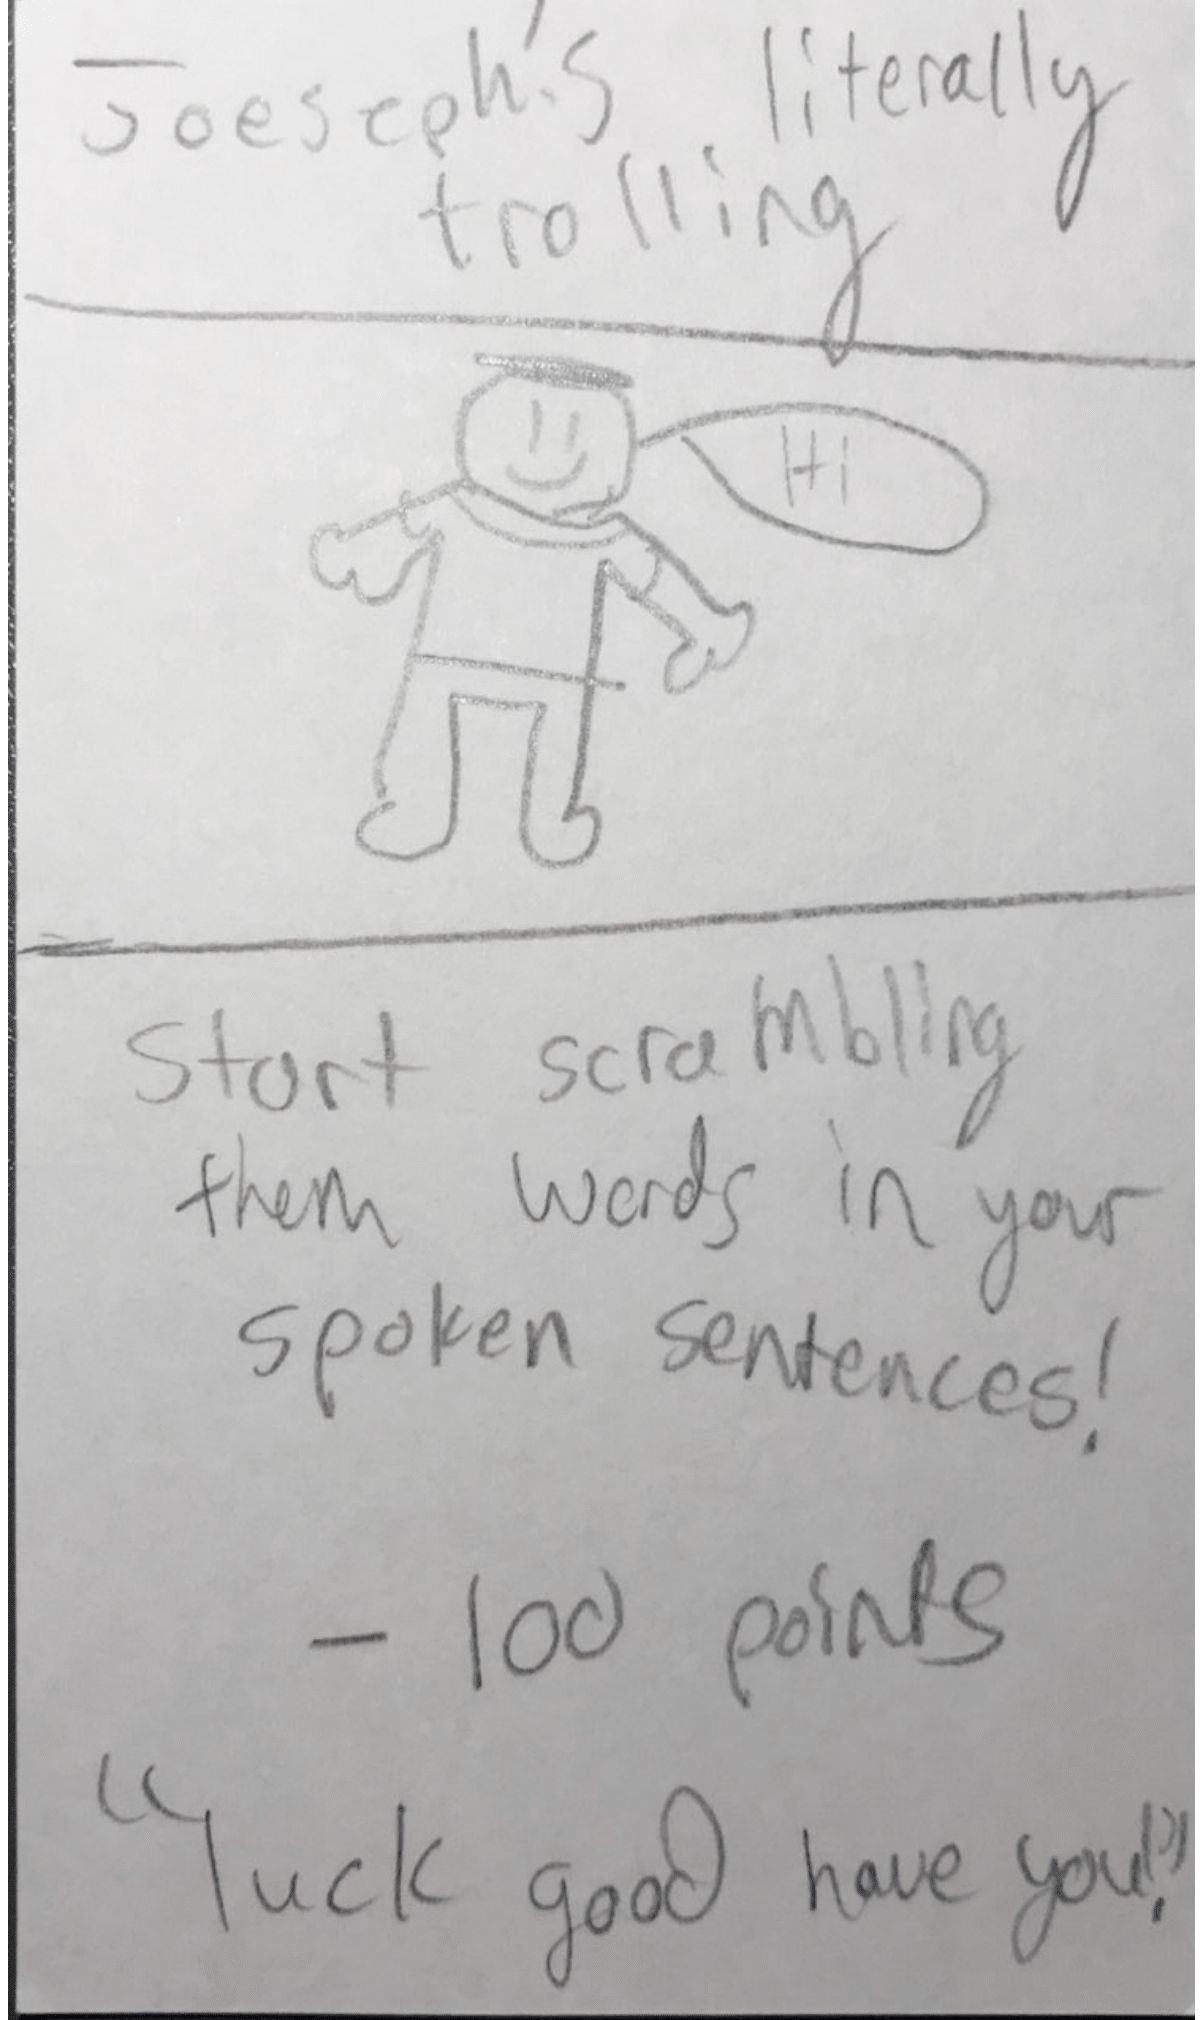 Joeseph's literally
trolling
Hi
Start scrambling
them words in your
spoken sentences!
- 100 points
"luck good have you!"